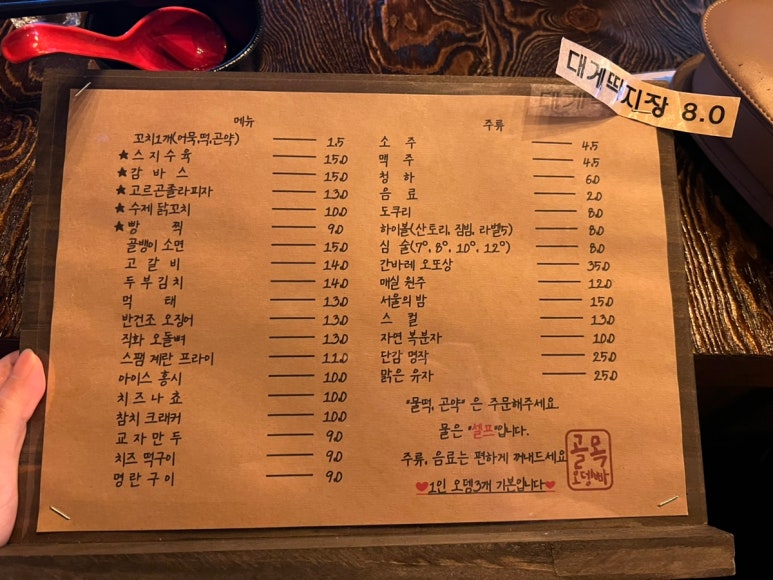 대게딱지장 8.0
메뉴
꼬치1개(어묵,떡,곤약) 1.5
★스지수육 15.0
★감바스 15.0
★고르곤졸라피자 13.0
★수제 닭꼬치 10.0
★빵 찍 9.0
골뱅이 소면 15.0
고갈비 14.0
두부김치 14.0
먹태 13.0
반건조 오징어 13.0
직화 오돌뼈 13.0
스팸 계란 프라이 11.0
아이스 홍시 10.0
치즈나쵸 10.0
참치 크래커 10.0
교자만두 9.0
치즈 떡구이 9.0
명란구이 9.0
주류
소주 4.5
맥주 4.5
청하 6.0
음료 2.0
도쿠리 8.0
하이볼(산토리, 짐빔, 라벨5) 8.0
심술(7°, 8°, 10°, 12°) 8.0
간바레 오또상 35.0
매실 원주 12.0
서울의밤 15.0
스컬 13.0
자연 복분자 10.0
단감 명작 25.0
맑은 유자 25.0
"물떡, 곤약" 은 주문해주세요.
물은 "셀프"입니다.
주류, 음료는 편하게 꺼내드세요
❤1인 오뎅3개 기본입니다❤
골목
오뎅빠